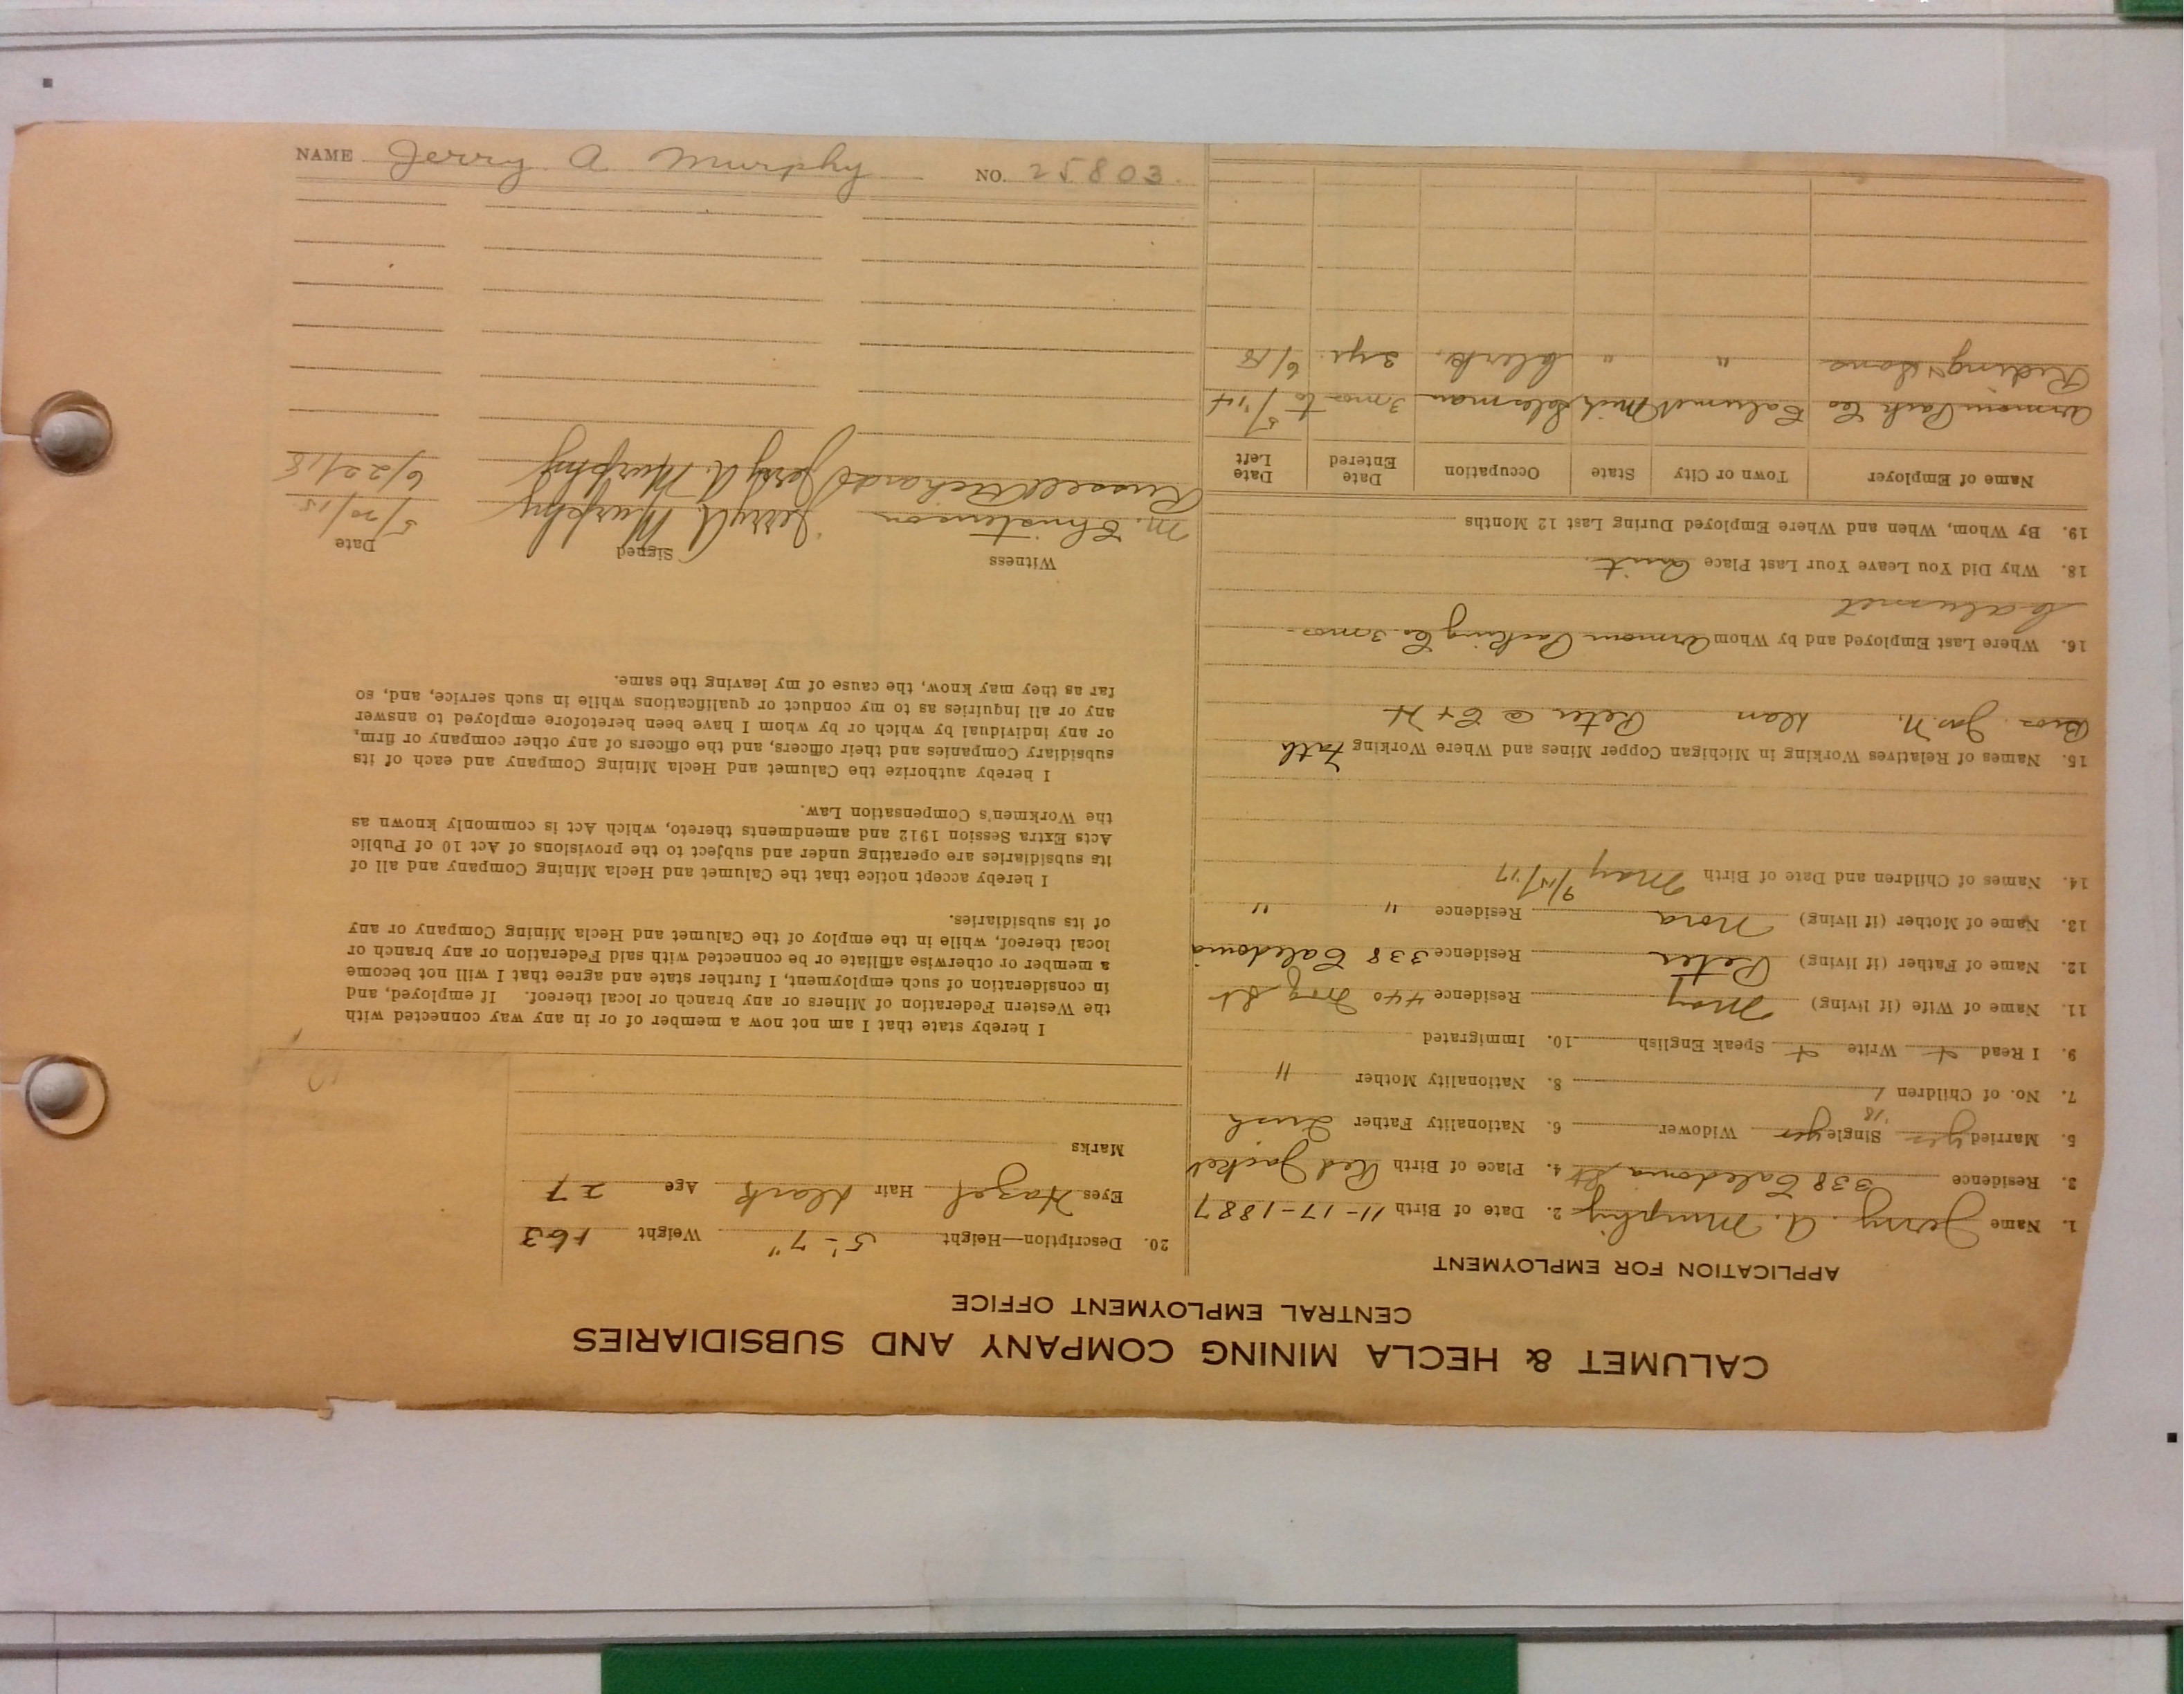 CALUMET & HECLA MINING COMPANY AND SUBSIDIARIES
CENTRAL EMPLOYMENT OFFICE
APPLICATION FOR EMPLOYMENT
1. Name Jerry. A. Murphy 2. Date of Birth 11-17-1887
3. Residence 338 Caledonia St 4. Place of Birth Red Jacket
5. Married yes '18 Single yes Widower 6. Nationality Father Irish
7. No. of Children 1 8. Nationality Mother "
9. I Read + Write + Speak English 10. Immigrated
11. Name of Wife (if living) May Residence 440 St
12. Name of Father (if living) Peter Residence 338 Caledonia
13. Name of Mother (if living) Nora Residence " "
14. Names of Children and Date of Birth May 9/15/17
15. Names of Relatives Working in Michigan Copper Mines and Where Working Fath
Bros. Jas. N. Dan Peter @ C + H
16. Where Last Employed and by Whom Armour Packing Co 3 mos -
Calumet
18. Why Did You Leave Your Last Place Quit.
19. By Whom, When and Where Employed During Last 12 Months
Name of Employer Town or City State Occupation Date Entered Date Left
Armour Pack Co Calumet Mich Salesman 3 mos to 5/'14
Reding's Sons " " Clerk. 2 yr. 6/18
20. Description—Height 5'-7" Weight 163
Eyes Hazel Hair Dark Age 27
Marks
I hereby state that I am not now a member of or in any way connected with
the Western Federation of Miners or any branch or local thereof. If employed, and
in consideration of such employment, I further state and agree that I will not become
a member or otherwise affiliate or be connected with said Federation or any branch or
local thereof, while in the employ of the Calumet and Hecla Mining Company or any
of its subsidiaries.
I hereby accept notice that the Calumet and Hecla Mining Company and all of
its subsidiaries are operating under and subject to the provisions of Act 10 of Public
Acts Extra Session 1912 and amendments thereto, which Act is commonly known as
the Workmen's Compensation Law.
I hereby authorize the Calumet and Hecla Mining Company and each of its
subsidiary Companies and their officers, and the officers of any other company or firm,
or any individual by which or by whom I have been heretofore employed to answer
any or all inquiries as to my conduct or qualifications while in such service, and, so
far as they may know, the cause of my leaving the same.
Witness Signed Date
M. Christenson Jerry A. Murphy 5/20/15.
Russell Richards Jerry A. Murphy 6/22/18
NAME Jerry A Murphy NO. 25803